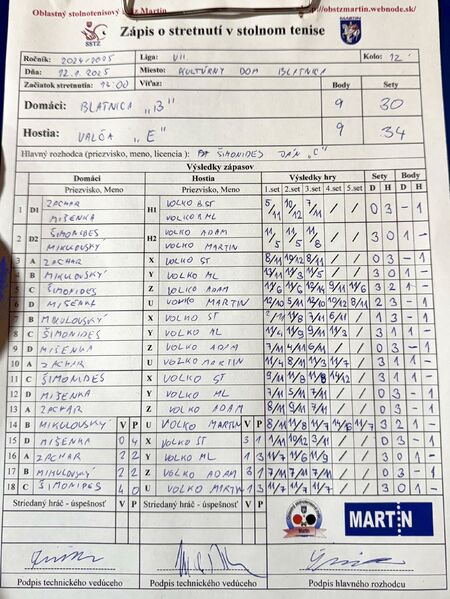 Oblastný stolnotenisový zväz Martin http://obstzmartin.webnode.sk/
Zápis o stretnutí v stolnom tenise
SSTZ
MARTIN
Ročník: 2024/2025 Liga: VII. Kolo: 12
Dňa: 12.1.2025 Miesto: KULTÚRNY DOM BLATNICA
Začiatok stretnutia: 14:00 Víťaz: Body Sety
Domáci: BLATNICA "B" 9 30
Hostia: VALČA "E" 9 34
Hlavný rozhodca (priezvisko, meno, licencia): ŠIMONIDES JÁN "C"
Výsledky zápasov
Domáci Hostia Výsledky hry Sety Body
Priezvisko, Meno Priezvisko, Meno 1.set 2.set 3.set 4.set 5.set D H D H
1 D1 ZACHAR H1 VOLKO ST 5/11 10/12 7/11 / / 0 3 - 1
MIŠENKA VOLKO ML
2 D2 ŠIMONIDES H2 VOLKO ADAM 11/5 11/5 11/8 / / 3 0 1 -
MIKULOVSKÝ VOLKO MARTIN
3 A ZACHAR X VOLKO ST 8/11 10/12 8/11 / / 0 3 - 1
4 B MIKULOVSKÝ Y VOLKO ML 13/11 11/3 11/5 / / 3 0 1 -
5 C ŠIMONIDES Z VOLKO ADAM 11/6 11/6 9/11 11/6 3 2 1 -
6 D MIŠENKA U VOLKO MARTIN 12/10 5/11 10/12 2 3 - 1
7 B MIKULOVSKÝ X VOLKO ST 11/8 7/11 6/11 / 1 3 - 1
8 C ŠIMONIDES Y VOLKO ML 11/4 11/9 11/3 / 3 1 1 -
9 D MIŠENKA Z VOLKO ADAM 7/11 4/11 6/11 / / 0 3 - 1
10 A ZACHAR U VOLKO MARTIN 11/4 8/11 11/3 11/7 / 3 1 1 -
11 C ŠIMONIDES X VOLKO ST 9/11 11/8 11/8 14/12 / 3 1 1 -
12 D MIŠENKA Y VOLKO ML 7/11 5/11 7/11 / / 0 3 - 1
13 A ZACHAR Z VOLKO ADAM 8/11 9/11 7/11 / / 0 3 - 1
14 B MIKULOVSKÝ V P U VOLKO MARTIN V P 11/7 3 2 1 -
15 D MIŠENKA 0 4 X VOLKO ST 3 1 1/11 10/12 3/11 / / 0 3 - 1
16 A ZACHAR 2 2 Y VOLKO ML 1 3 11/7 11/6 11/9 / / 3 0 1 -
17 B MIKULOVSKÝ 2 2 Z VOLKO ADAM 3 1 7/11 7/11 7/11 / / 0 3 - 1
18 C ŠIMONIDES 4 0 U VOLKO MARTIN 1 3 11/7 11/7 11/7 / / 3 0 1 -
Striedaný hráč - úspešnosť V P Striedaný hráč - úspešnosť V P
MARTIN
Podpis technického vedúceho Podpis technického vedúceho Podpis hlavného rozhodcu